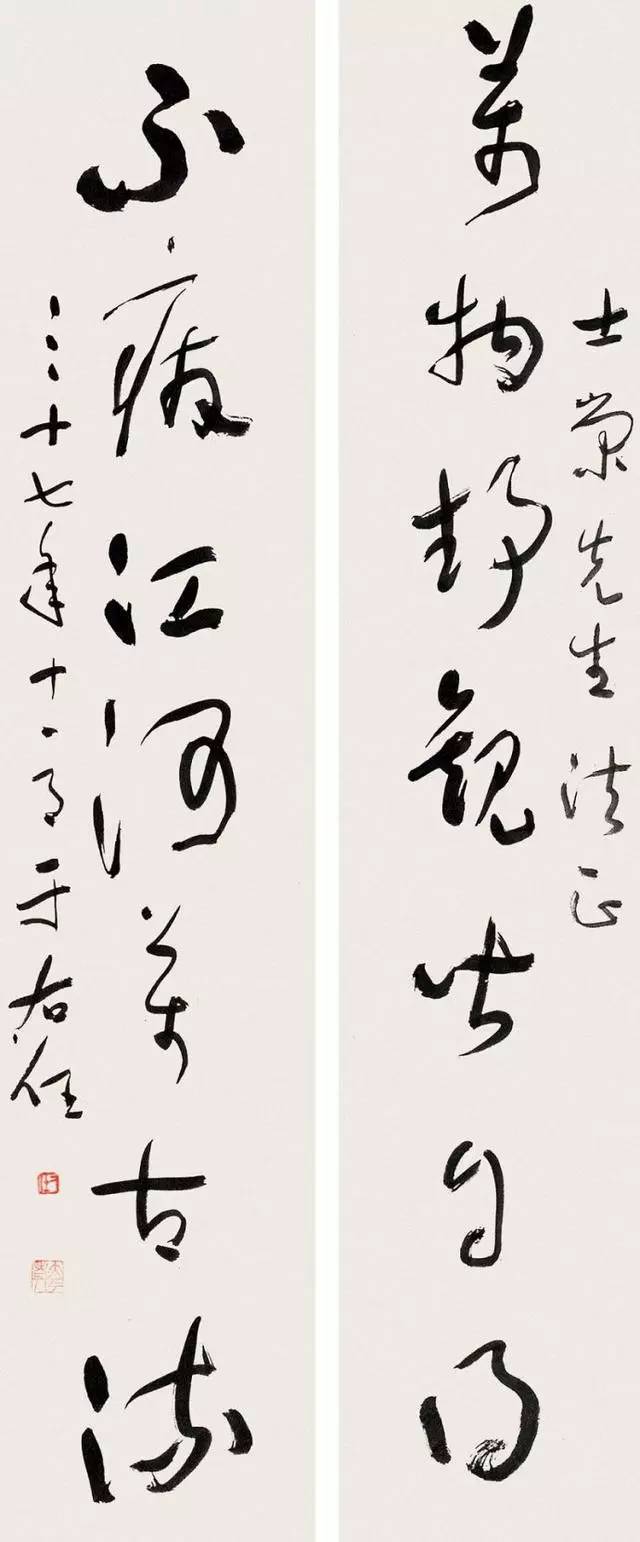 萬物静觀皆自得
士榮先生法正
不廢江河萬古流
三十七年十一月于右任